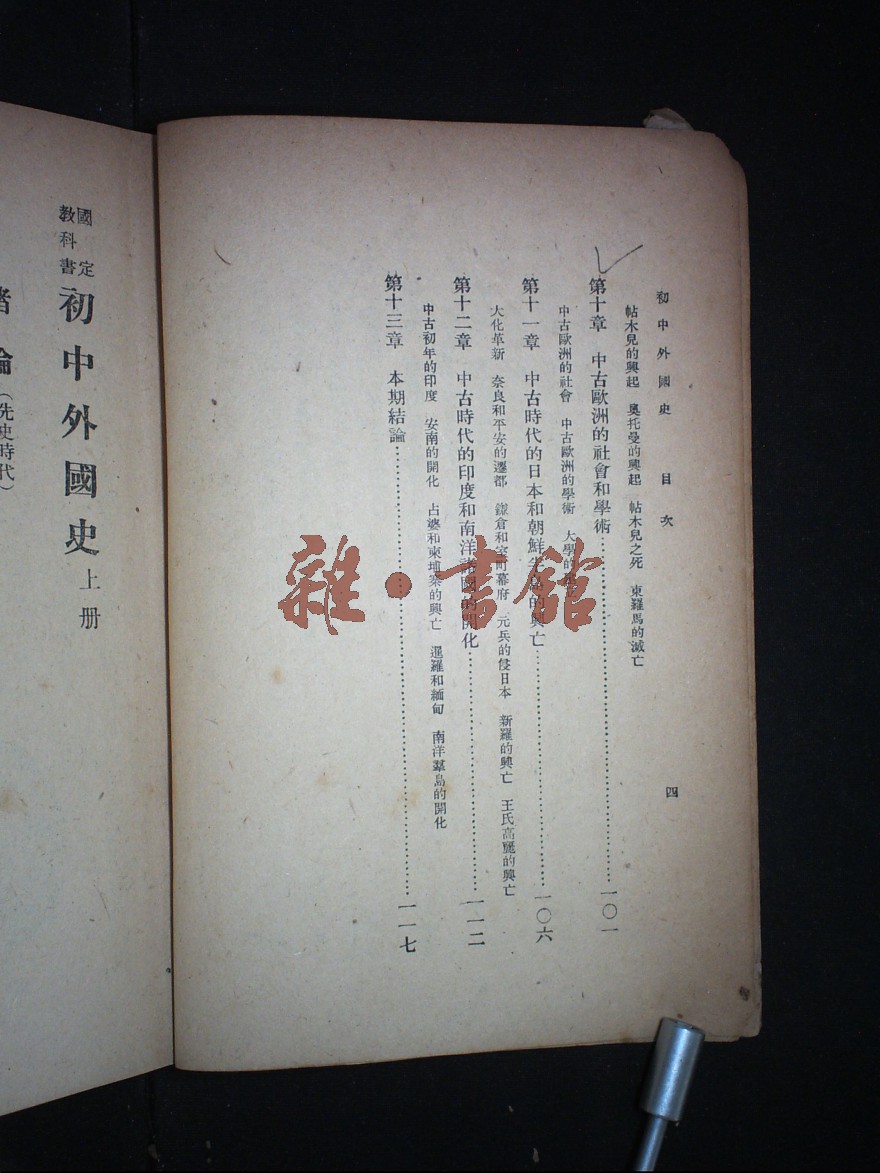 初中外國史 目次 四
帖木兒的興起 奧托曼的興起 帖木兒之死 東羅馬的滅亡
第十章 中古歐洲的社會和學術…………一〇一
中古歐洲的社會 中古歐洲的學術 大學的
第十一章 中古時代的日本和朝鮮半島的興亡…………一〇六
大化革新 奈良和平安的遷都 鎌倉和室町幕府 元兵的侵日本 新羅的興亡 王氏高麗的興亡
第十二章 中古時代的印度和南洋諸國的開化…………一一二
中古初年的印度 安南的開化 占婆和柬埔寨的興亡 暹羅和緬甸 南洋羣島的開化
第十三章 本期結論…………一一七
國定教科書
初中外國史 上册
緒論(先史時代)
雜·書館